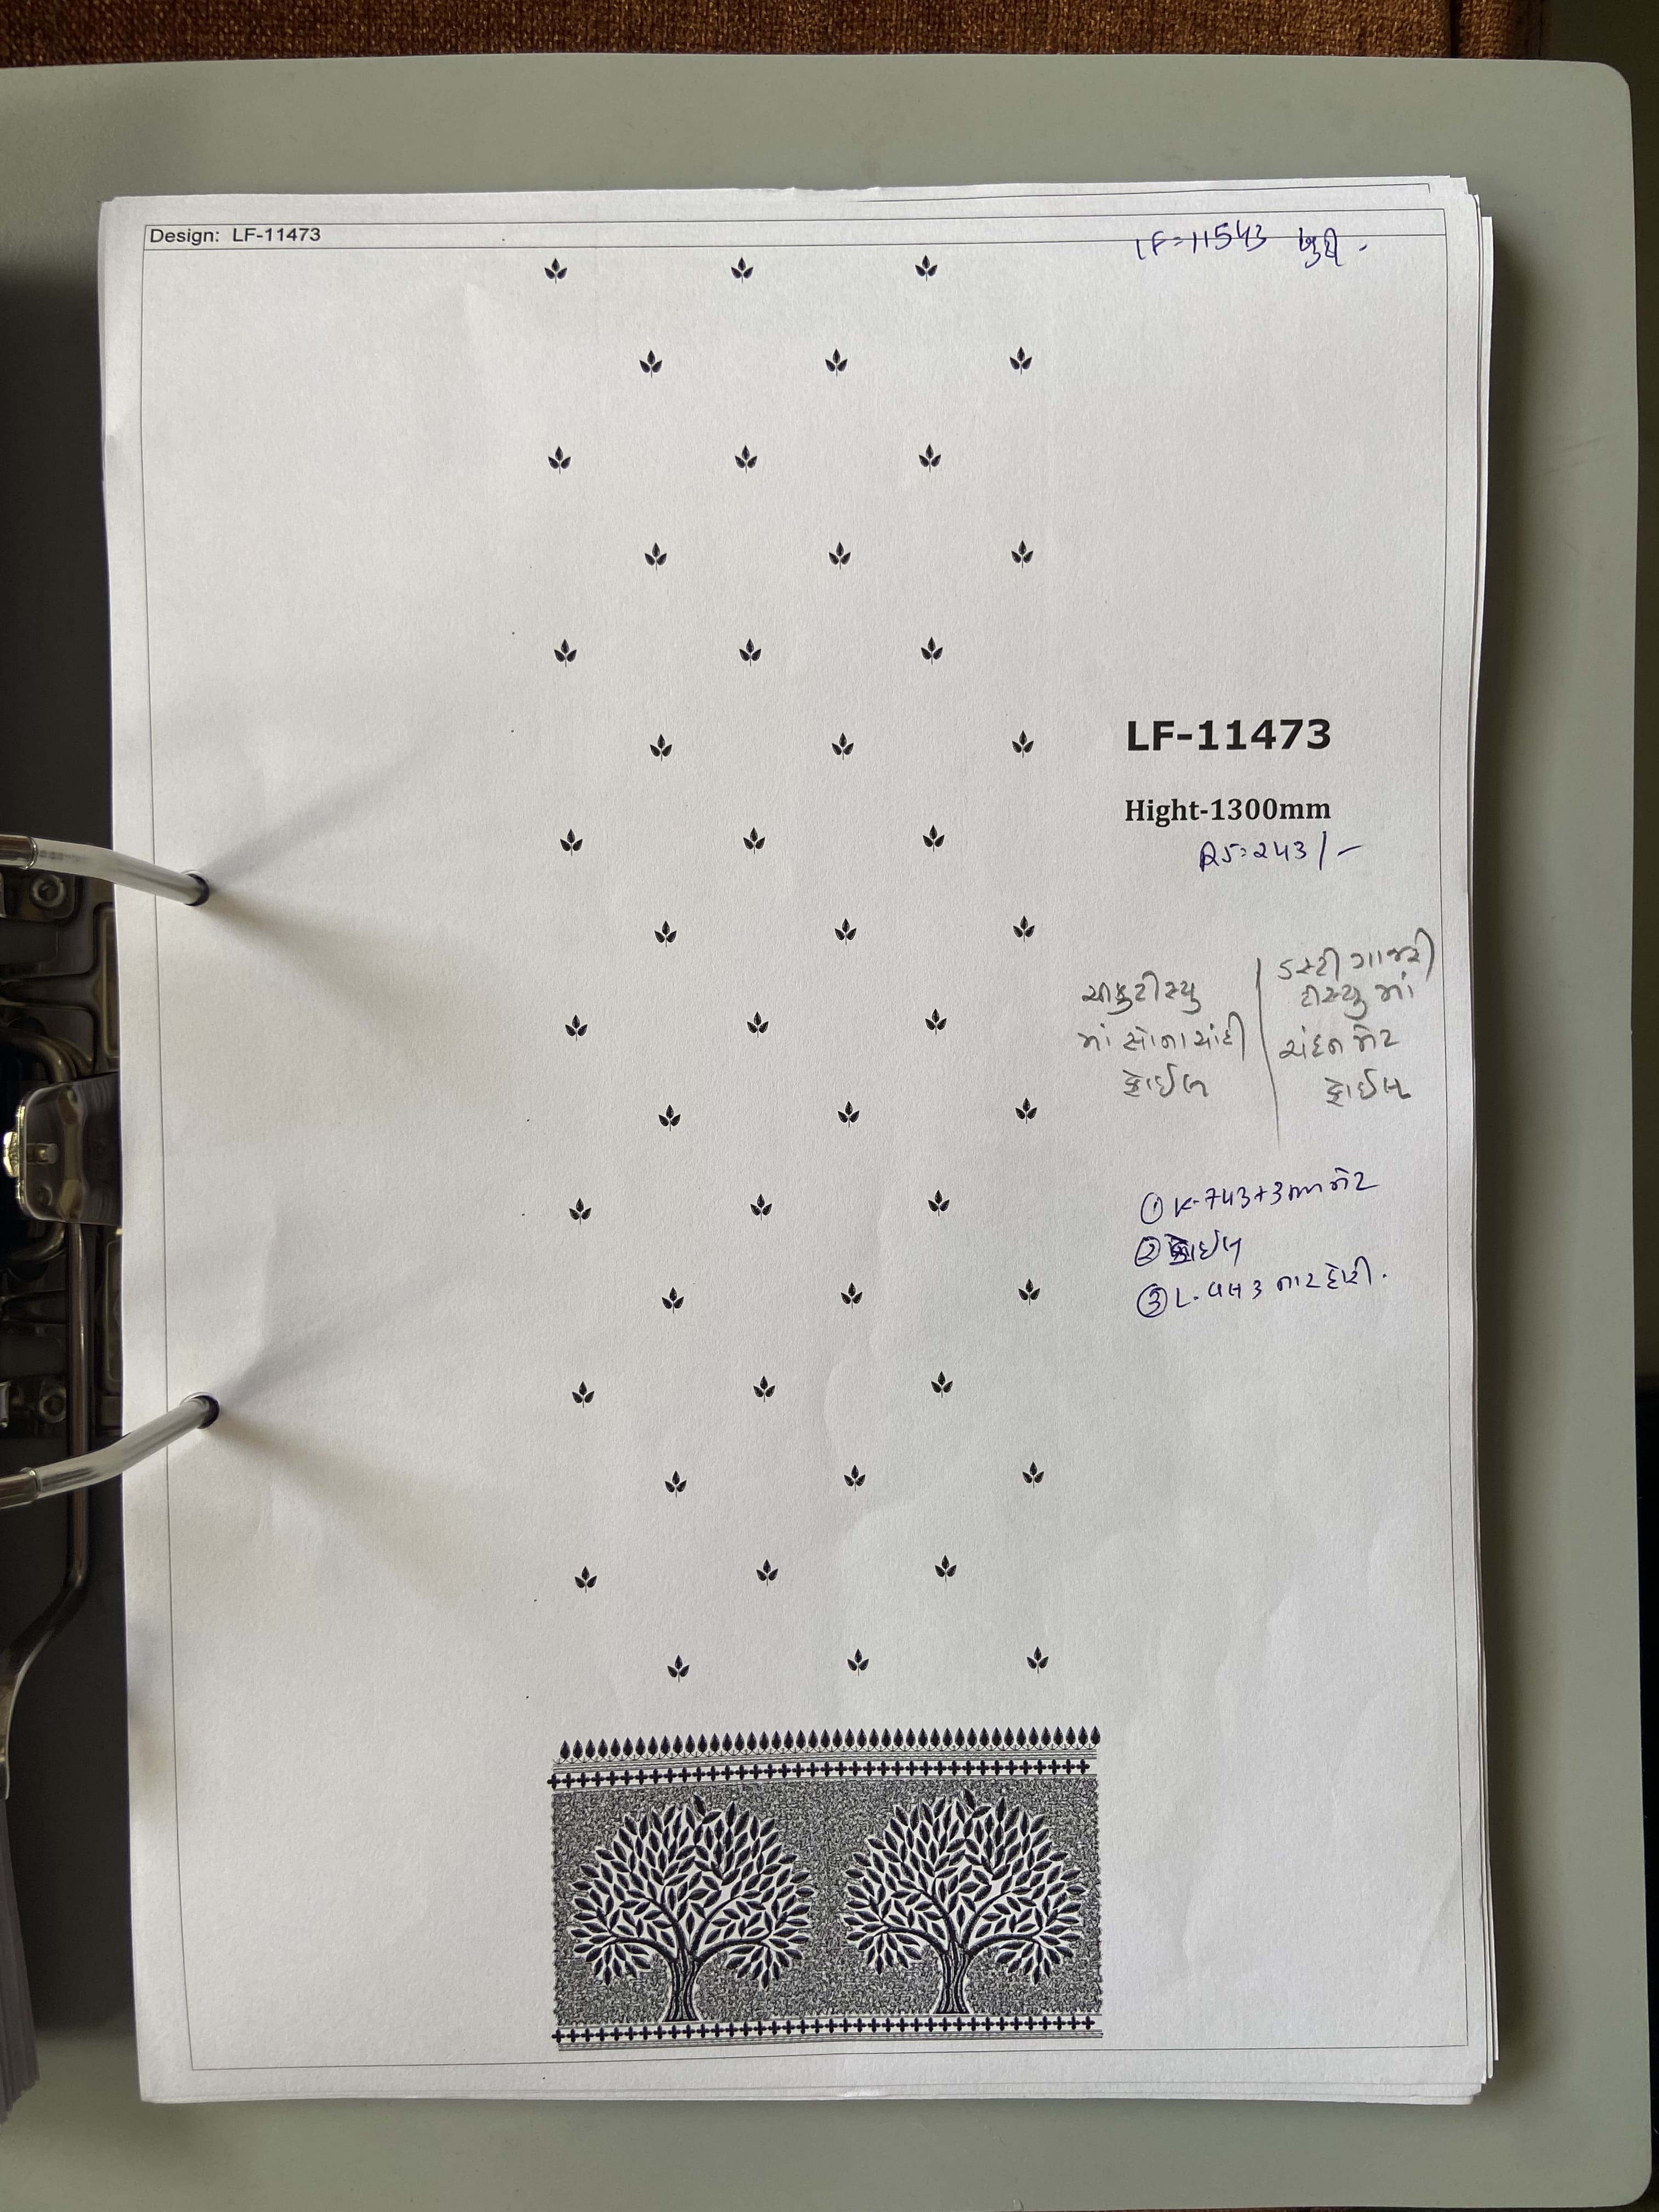 Design: LF-11473
LF=11543
LF-11473
Hight-1300mm
RS=243/-
ટીસ્યુ
માં સોનાચાંદી
ફોઈલ
ડસ્ટી ગાજરી
ટીસ્યુ માં
ચંદન મેટ
ફોઈલ
① K-743+3mm મેટ
② ફોઈલ
③ L.